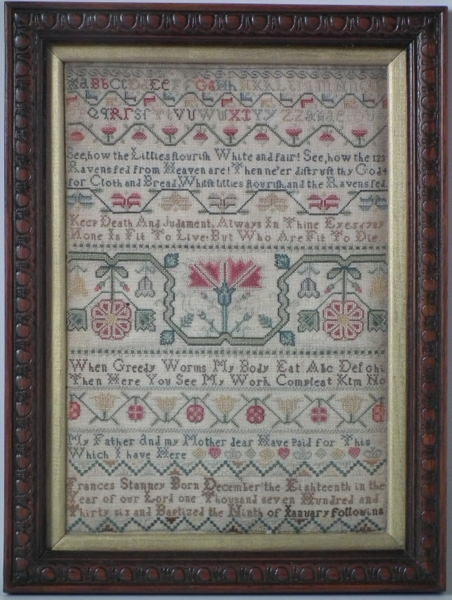 AaBbCcDdEeFfGgHh
QqRrSsTtVvUuWwXxYyZz
See, how the Lillies flourish White and fair! See, how the 123
Ravens fed from Heaven are! Then ne'er distrust thy God 4
for Cloth and Bread, Whilst lillies flourish, and the Ravens fed.
Keep Death And Judament, Always In Thine Eyes
None Is Fit To Live: But Who Are Fit To Die
When Greedy Worms My Body Eat Abc Defghi
Then Here You See My Work Compleat Klm No
My Father and my Mother dear Have Paid for This
Which I have Here
Frances Stanney Born December the Eighteenth in the
Year of our Lord one Thousand seven Hundred and
Thirty six and Baptized the Ninth of January following